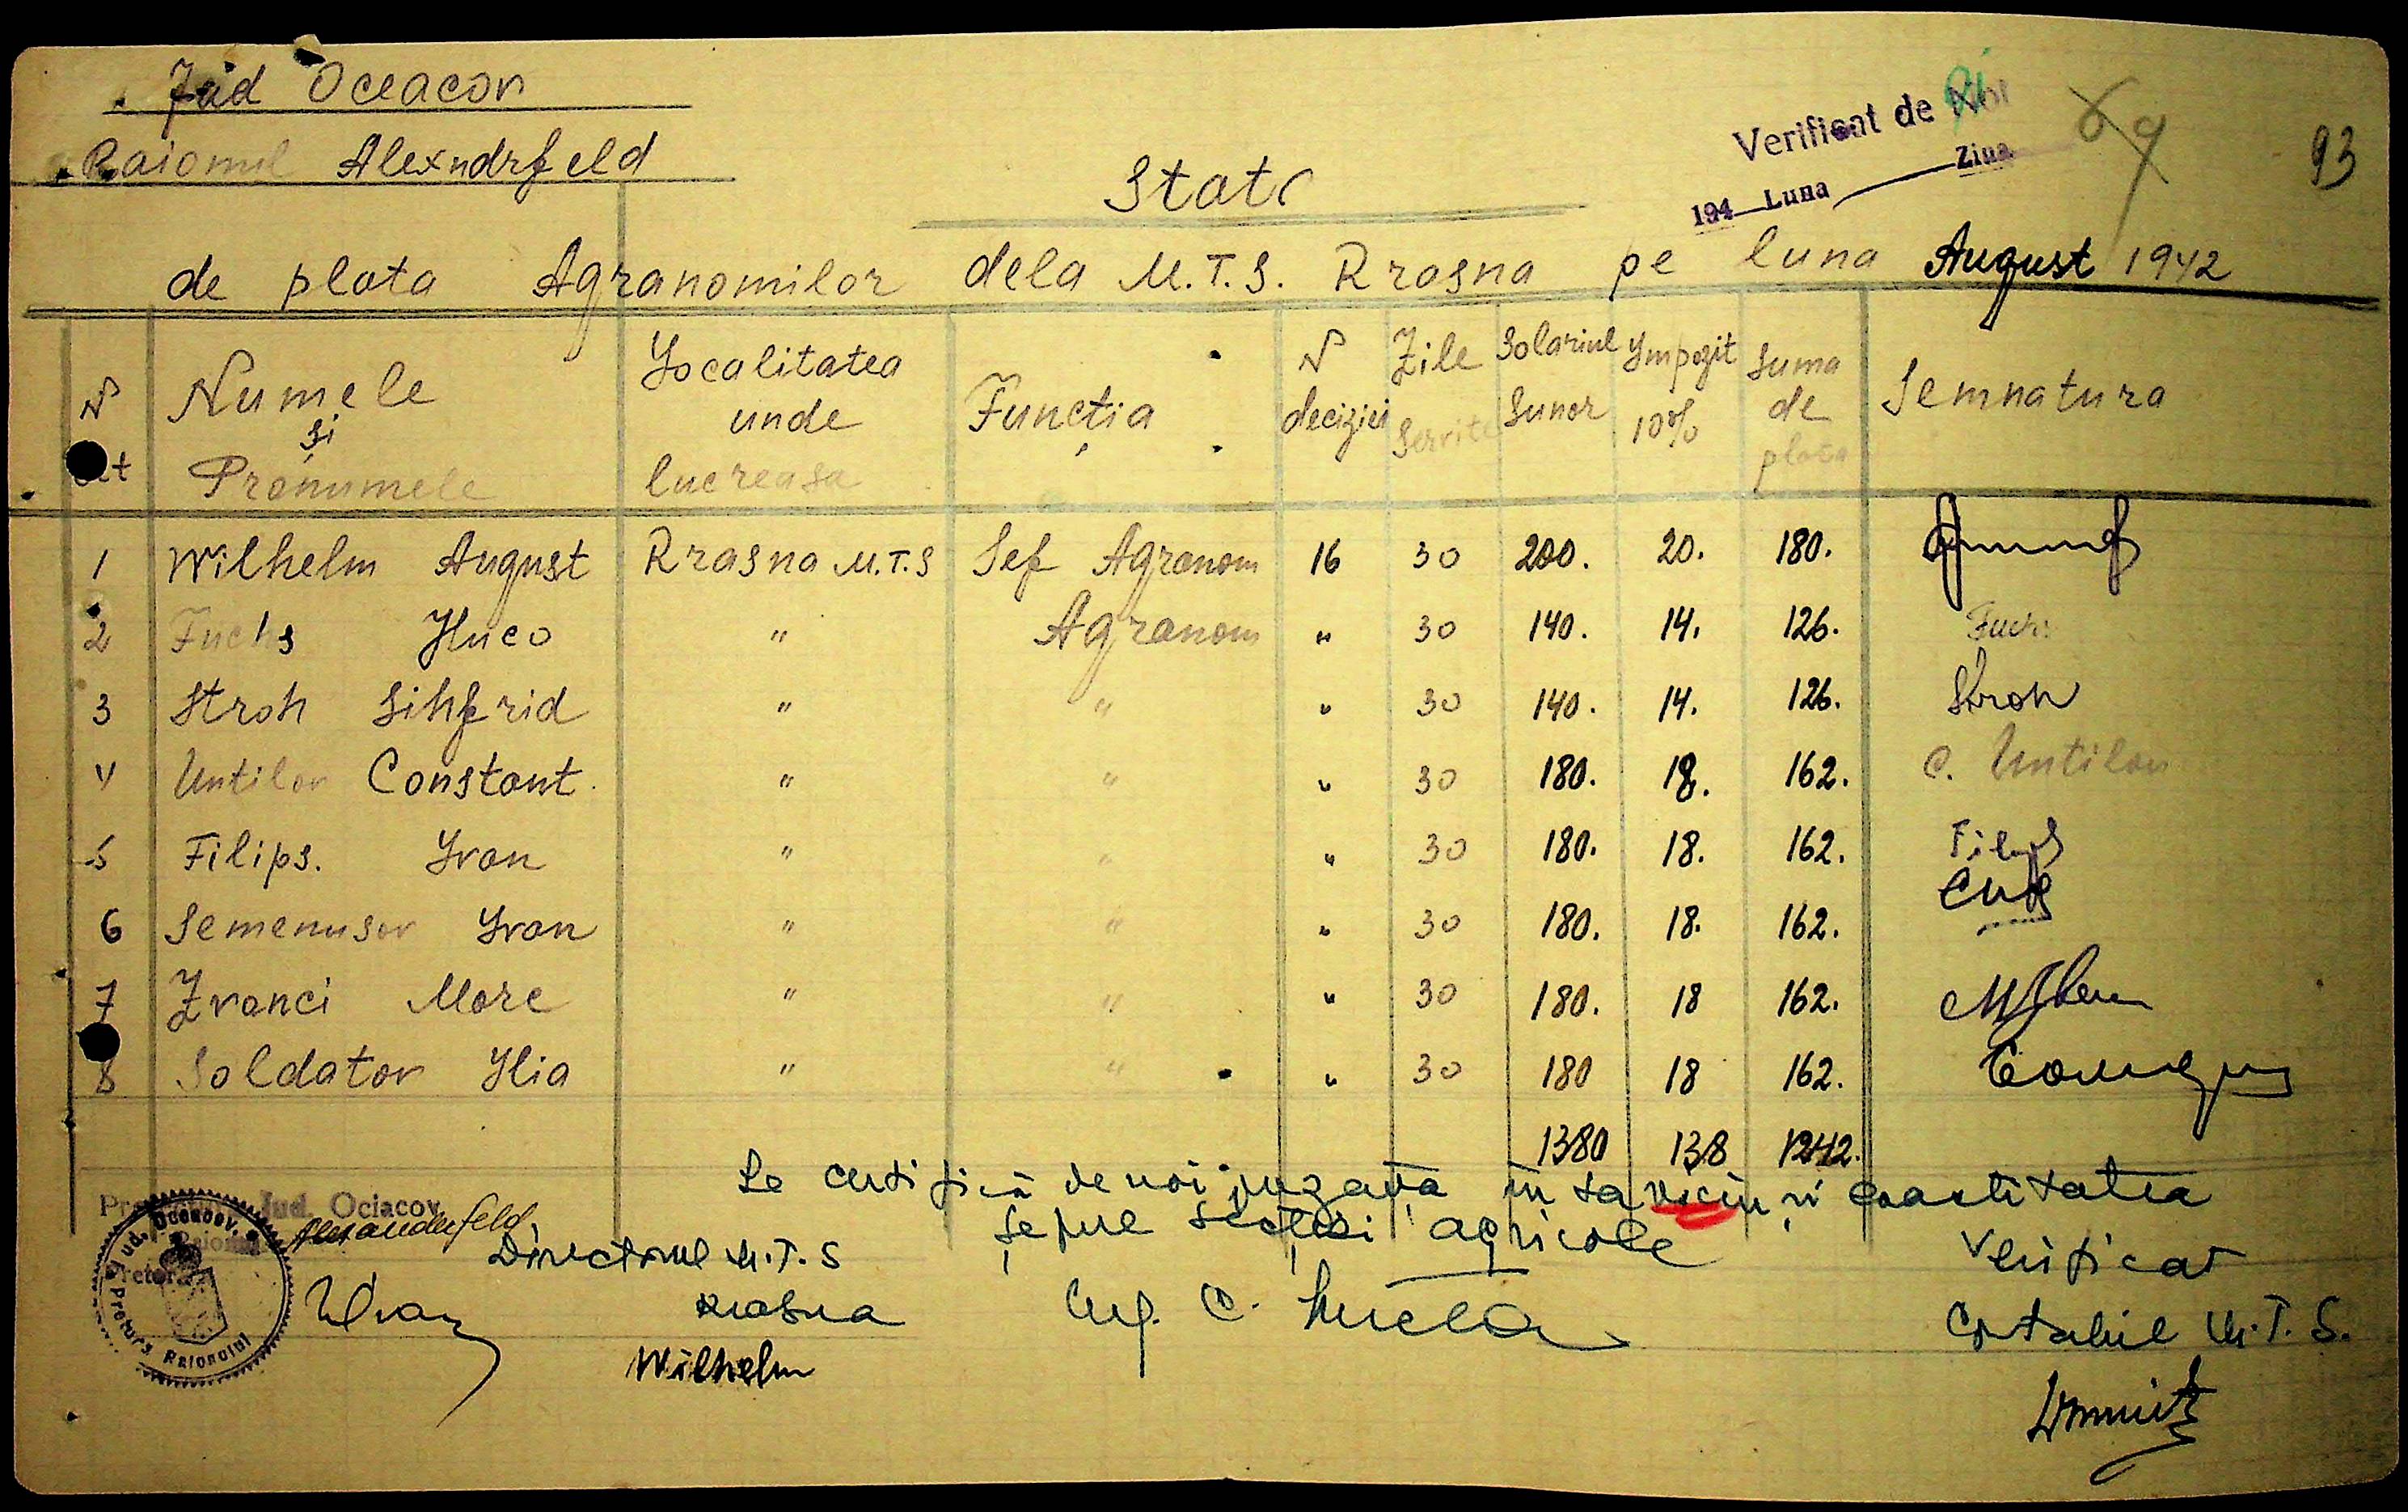 Jud Oceacov
Raionul Alexndrfeld
Verificat de Noi
194 Luna Ziua
69
93
Stat
de plata Agranomilor dela M.T.S. Krasna pe luna August 1942
N Numele și Pronumele Localitatea unde lucreasa Funcția N deciziei Zile Servite Solariul Lunar Impozit 10% Suma de plata Semnatura
1 Wilhelm August Krasna M.T.S Șef Agranom 16 30 200. 20. 180.
2 Fuchs Huco " Agranom " 30 140. 14. 126. Fuchs
3 Stroh Sihfrid " " " 30 140. 14. 126. Stroh
4 Untilov Constant. " " " 30 180. 18. 162. C. Untilov
5 Filips. Ivan " " " 30 180. 18. 162. Filips
6 Semenusov Ivan " " " 30 180. 18. 162.
7 Zvanci Marc " " " 30 180. 18 162.
8 Soldatov Ilia " " " 30 180 18 162.
1380 138 1242.
Se certifică de noi și exactitatea
agricole
Jud. Ociacov
Alexanderfeld
Directorul M.T.S
Krasna
Wilhelm
Ing. C.
Verificat
Contabil M.T.S.
Jud. Oceacov.
Pretura Raionului